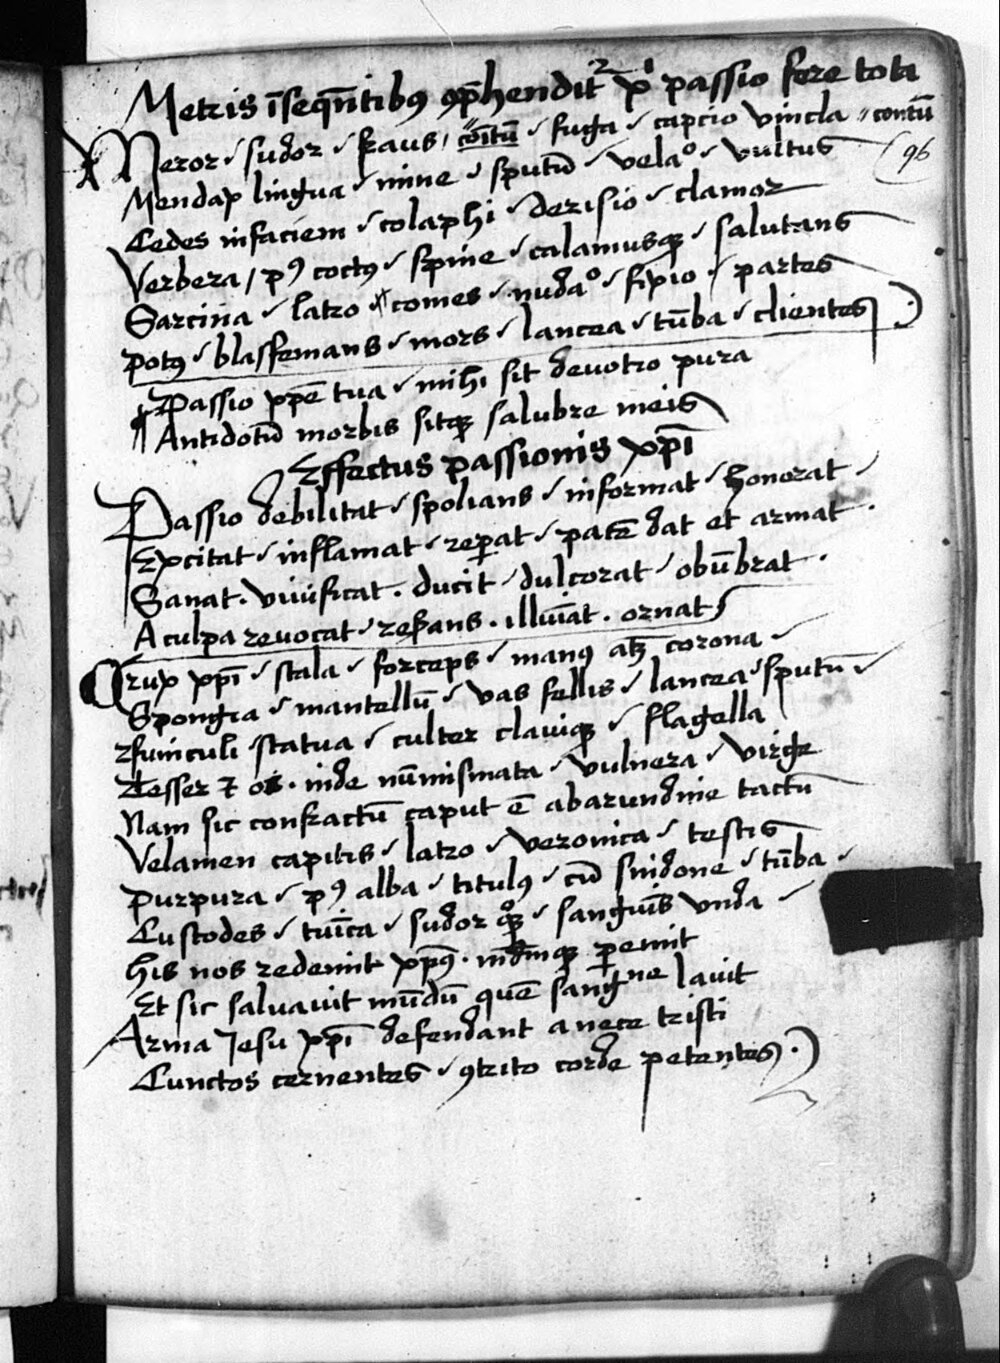 Metris īseqn̄tibꝰ ꝯp̄hendit᷑ xp̄i passio fere tota
Meror / sudor / fraus / / fuga / capcio vincla // comitū
96
Mendax lingua / mine / sputū / velaᵒ / vultus
Cedes in faciem / colaphi / derisio / clamor
Verbera / pꝰ coctꝰ / spine / calamusqꝫ / salutans
Sarcina / latro / comes / nudaᵒ / sixio / partes
Potꝰ / blasfemans / mors / lancea / tūba / clientes
Passio xp̄e tua / mihi sit devotio pura
Antidotū morbis sitqꝫ salubre meis
Effectus passionis xp̄i
Passio debilitat / spolians / informat / honorat /
Excitat / inflamat / reꝑat / patē dat et armat .
Sanat . vivificat . ducit / dulcorat / obūbrat .
A culpa revocat / reserans . illuīat . ornat
Crux xp̄i / scala / forceps / manꝰ atqꝫ corona /
Spongia / mantellū / vas fellis / lancea / sputū /
funiculi / statua / culter clauiqꝫ / flagella
Tesser ⁊ os . inde nūmismata / vulnera / virge
Nam sic confractū caput ē ab arundine tactū
Velamen capitis / latro / veronica / testis
Purpura / pꝰ alba / titulꝰ / cū sindone / tūba /
Custodes / tuīca / sudor qꝫ / sanguīs unda /
His nos redemit xp̄s . ꝑemit
Et sic salvavit mūdū quē sangⁱne lavit
Arma Jesu xp̄i defendant a nece tristi
Cunctos cernentes / ꝯtrito corde petentes .